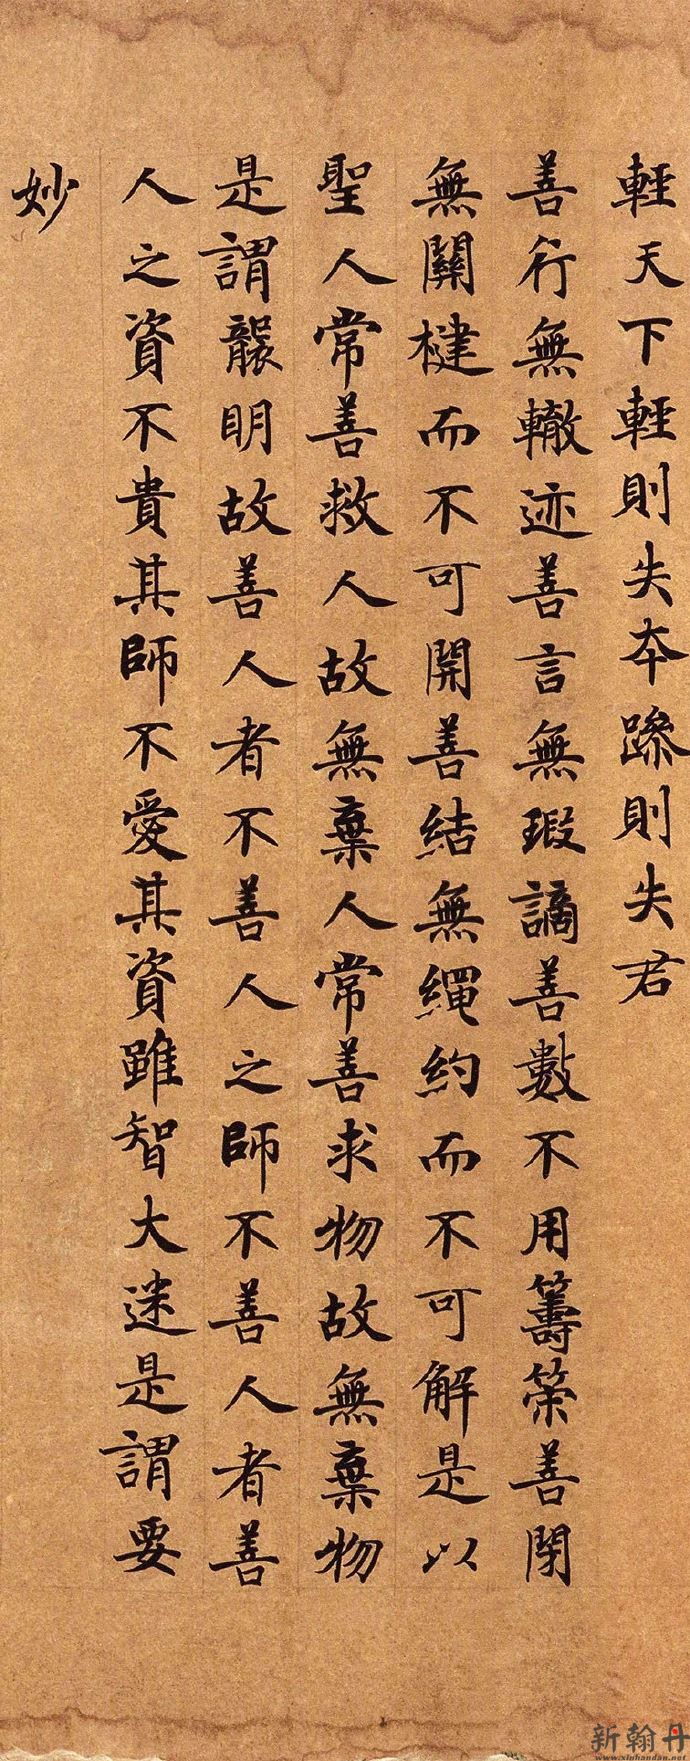 輕天下輕則失本躁則失君
善行無轍迹善言無瑕謫善數不用籌策善閉
無關楗而不可開善結無繩約而不可解是以
聖人常善救人故無棄人常善求物故無棄物
是謂襲明故善人者不善人之師不善人者善
人之資不貴其師不愛其資雖智大迷是謂要
妙
新翰丹
www.xinhandan.net